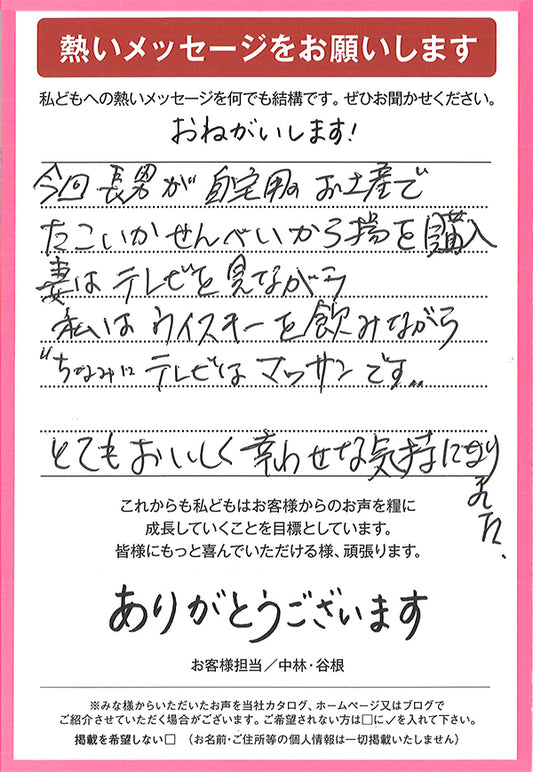 熱いメッセージをお願いします
私どもへの熱いメッセージを何でも結構です。ぜひお聞かせください。
おねがいします!
今回 長男が 自宅用の お土産で
たこいかせんべいから揚を購入
妻は テレビを 見ながら
私は ウイスキーを飲みながら
"ちなみに テレビは マッサン です"
とても おいしく 幸わせな気持になり
ました、
これからも私どもはお客様からのお声を糧に
成長していくことを目標としています。
皆様にもっと喜んでいただける様、頑張ります。
ありがとうございます
お客様担当／中林・谷根
※みな様からいただいたお声を当社カタログ、ホームページ又はブログで
ご紹介させていただく場合がございます。ご希望されない方は□に✓を入れて下さい。
掲載を希望しない□ （お名前・ご住所等の個人情報は一切掲載いたしません）